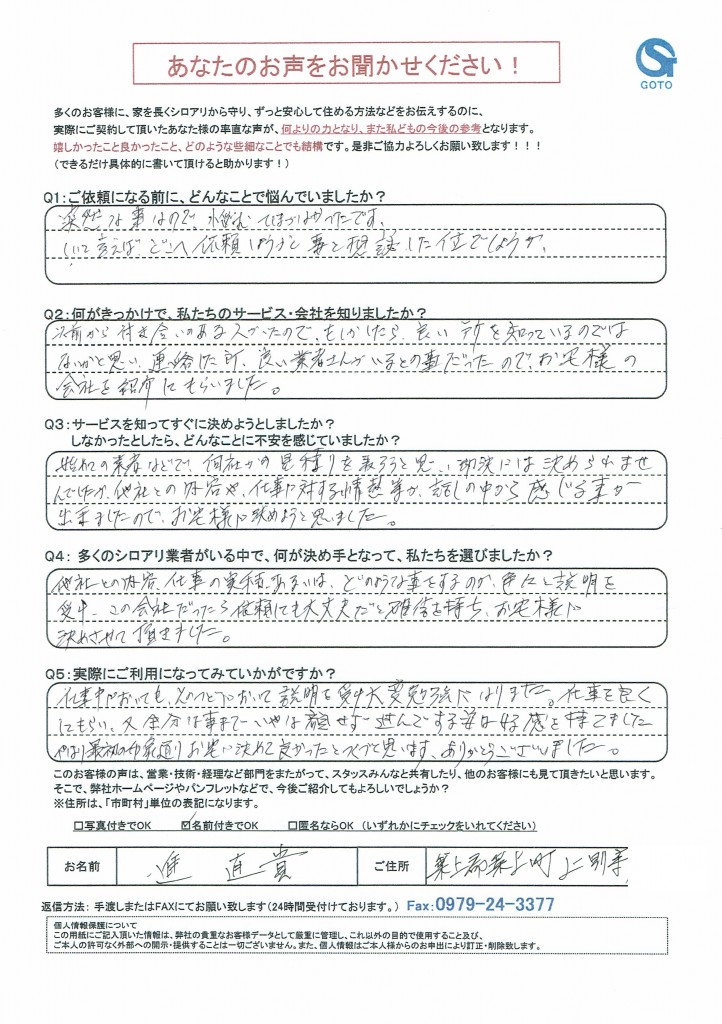 あなたのお声をお聞かせください！
GOTO
多くのお客様に、家を長くシロアリから守り、ずっと安心して住める方法などをお伝えするのに、
実際にご契約して頂いたあなた様の率直な声が、何よりの力となり、また私どもの今後の参考となります。
嬉しかったこと良かったこと、どのような些細なことでも結構です。是非ご協力よろしくお願い致します！！！
（できるだけ具体的に書いて頂けると助かります！）
Q1：ご依頼になる前に、どんなことで悩んでいましたか？
突然な事なので、悩む ではなかったです、
しいて言えば どこへ依頼しようかと妻と相談した位でしょうか、
Q2：何がきっかけで、私たちのサービス・会社を知りましたか？
以前から付き合いのある人がいたので、もしかしたら、良い所を知っているのでは
ないかと思い、連絡した所、良い業者さんがいるとの事だったので、お宅様の
会社を紹介してもらいました。
Q3：サービスを知ってすぐに決めようとしましたか？
しなかったとしたら、どんなことに不安を感じていましたか？
始めての業者などで、何社かの見積りを取ろうと思い即決には決められませ
んでしたが、他社との内容や、仕事に対する情熱等が、話しの中から感じる事が
出来ましたので、お宅様に決めようと思いました。
Q4： 多くのシロアリ業者がいる中で、何が決め手となって、私たちを選びましたか？
他社との内容、仕事の実績、あるいは、どのような事をするのか、色々と説明を
受け、この会社だったら依頼しても大丈夫だと確信を持ち、お宅様に
決めさせて頂きました。
Q5：実際にご利用になってみていかがですか？
仕事中においても、その つど において説明を受け大変勉強になりました。仕事を良く
してもらい、又余分な事まで いやな顔せず 進んでする姿は好感を持てました
やはり最初の 通りお宅に決めて良かったと つくづく思います、ありがとうございました。
このお客様の声は、営業・技術・経理など部門をまたがって、スタッスみんなと共有したり、他のお客様にも見て頂きたいと思います。
そこで、弊社ホームページやパンフレットなどで、今後ご紹介してもよろしいでしょうか？
※住所は、「市町村」単位の表記になります。
□写真付きでOK ☑名前付きでOK □匿名ならOK （いずれかにチェックをいれてください）
お名前 直賞 ご住所 築上郡築上町
返信方法： 手渡しまたはFAXにてお願い致します（24時間受付けております。） Fax：0979-24-3377
個人情報保護について
この用紙にご記入頂いた情報は、弊社の貴重なお客様データとして厳重に管理し、これ以外の目的で使用すること及び、
ご本人の許可なく外部への開示・提供することは一切ございません。また、個人情報はご本人様からのお申出により訂正・削除致します。